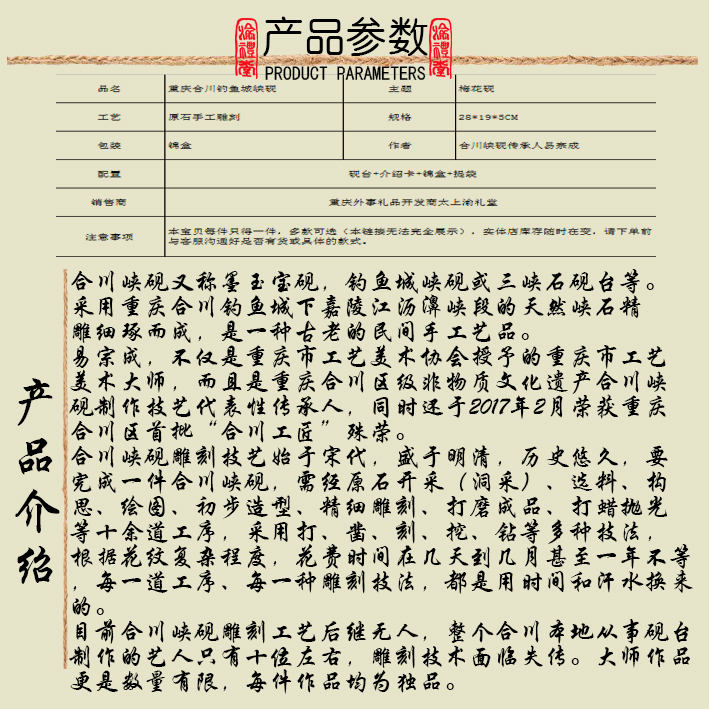 产品参数
渝禮堂
渝禮堂
PRODUCT PARAMETERS
品名 重庆合川钓鱼城峡砚 主题 梅花砚
工艺 原石手工雕刻 规格 28*19*5CM
包装 锦盒 作者 合川峡砚传承人易宗成
配置 砚台+介绍卡+锦盒+提袋
销售商 重庆外事礼品开发商太上渝礼堂
注意事项 本宝贝每件只得一件,多款可选(本链接无法完全展示),实体店库存随时在变,请下单前
与客服沟通好是否有货或具体的款式。
产品介绍
合川峡砚又称墨玉宝砚,钓鱼城峡砚或三峡石砚台等。
采用重庆合川钓鱼城下嘉陵江沥濞峡段的天然峡石精
雕细琢而成,是一种古老的民间手工艺品。
易宗成,不仅是重庆市工艺美术协会授予的重庆市工艺
美术大师,而且是重庆合川区级非物质文化遗产合川峡
砚制作技艺代表性传承人,同时还于2017年2月荣获重庆
合川区首批“合川工匠”殊荣。
合川峡砚雕刻技艺始于宋代,盛于明清,历史悠久,要
完成一件合川峡砚,需经原石开采(洞采)、选料、构
思、绘图、初步造型、精细雕刻、打磨成品、打蜡抛光
等十余道工序,采用打、凿、刻、挖、钻等多种技法,
根据花纹复杂程度,花费时间在几天到几月甚至一年不等
,每一道工序、每一种雕刻技法,都是用时间和汗水换来
的。
目前合川峡砚雕刻工艺后继无人,整个合川本地从事砚台
制作的艺人只有十位左右,雕刻技术面临失传。大师作品
更是数量有限,每件作品均为独品。